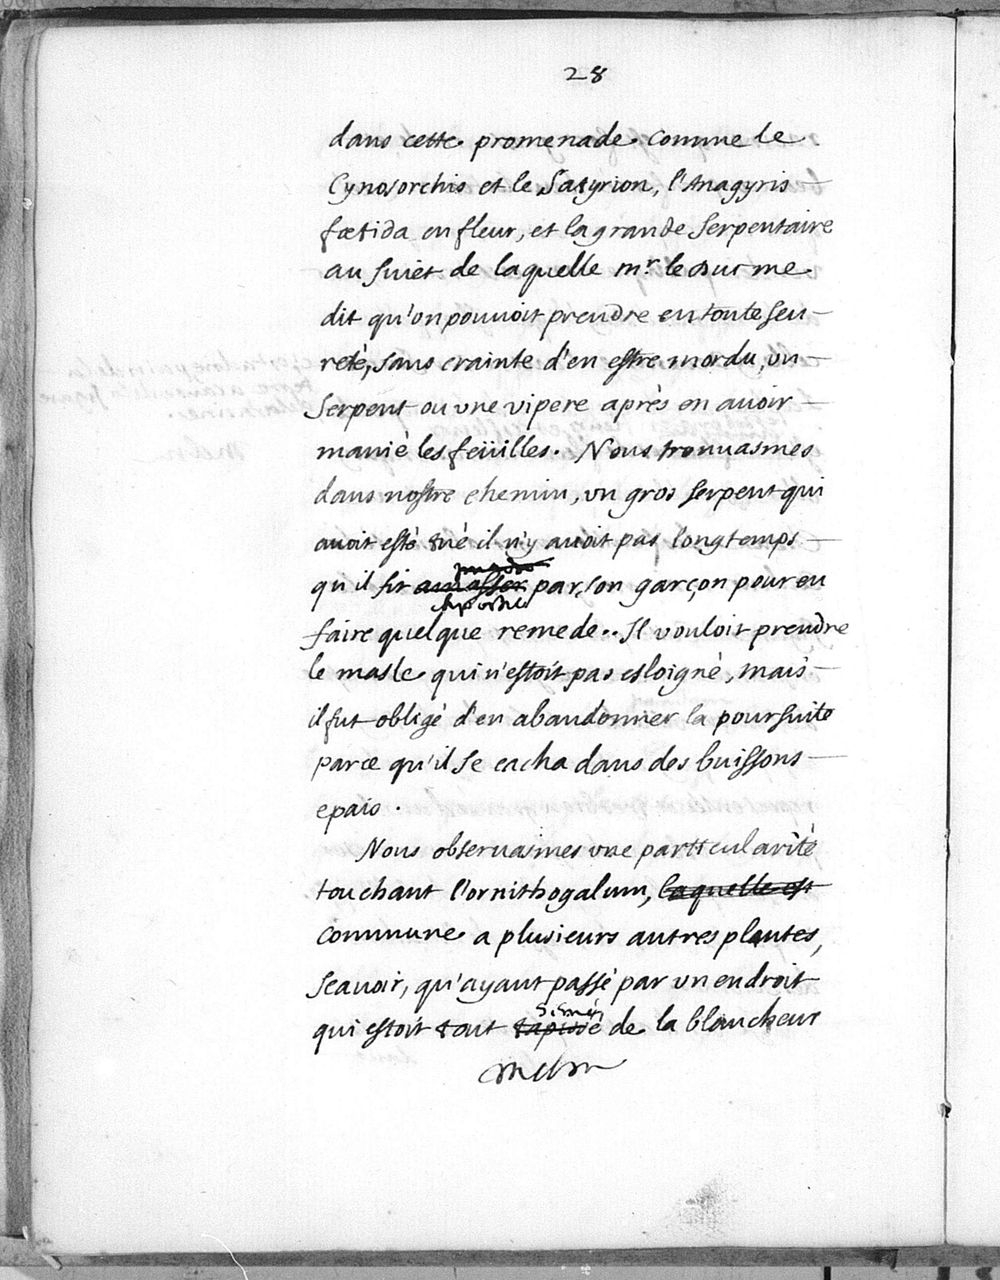 28
dans cette promenade comme le
Cynosorchis et le Satyrion, l'Anagyris
fœtida en fleur, et la grande Serpentaire
au suiet de laquelle mr. le me
dit qu'on pouuoit prendre en toute seu-
reté, sans crainte d'en estre mordu, vn
Serpent ou vne vipere aprés en auoir
manié les feüilles. Nous trouuasmes
dans nostre chemin, vn gros serpent qui
auoit esté tué il n'y auoit pas longtemps
qu'il fit amasser par son garçon pour en
faire quelque remede.. Il vouloit prendre
le masle qui n'estoit pas esloigné, mais
il fut obligé d'en abandonner la poursuite
parce qu'il se cacha dans des buissons
epais.
Nous obseruasmes vne particularité
touchant l'ornithogalum, laquelle est
commune a plusieurs autres plantes,
Scauoir, qu'ayant passé par vn endroit
semé
qui estoit tout tapissé de la blancheur